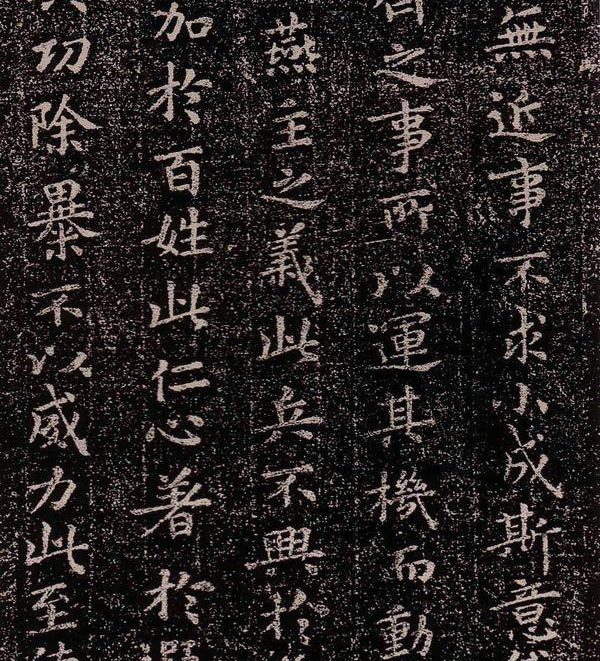 無近事不求小成斯意
之事所以運其機而動
燕主之義此兵不興於
加於百姓此仁心著於
功除暴不以威力此至